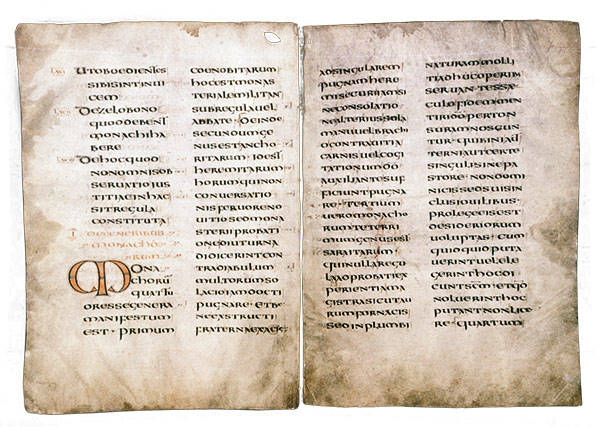 LXXI UT OBOEDIENTES
SIBI SINT INUI
CEM
LXXII DE ZELO BONO
QUOD DEBENT
MONACHI HA
BERE
LXXIII DE HOC QUOD
NON OMNIS OB
SERUATIO IUS
TITIAE IN HAC
SIT REGULA
CONSTITUTA
I DE GENERIBUS
MONACHO
RUM
MONA
CHORŪ
QUATTU
OR ESSE GENERA
MANIFESTUM
EST · PRIMUM
COENOBITARUM
HOC EST MONAS
TERIALE MILITAN
SUB REGULA UEL
ABBATE · DEINDE
SECUNDUM GE
NUS EST ANCHO
RITARUM ID EST
HEREMITARUM
HORUM QUI NON
CONUERSATIO
NIS FERUORE NO
UITIO SED MONA
STERII PROBATI
ONE DIUTURNA
DIDICERINT CON
TRA DIABULUM
MULTORUM SO
LACIO IAM DOCTI
PUGNARE · ET BE
NE EXSTRUCTI
FRATERNA EX ACIE
AD SINGULAREM
PUGNAM HERE
MI SECURI IAM SI
NE CONSOLATIO
NE ALTERIUS SOLA
MANU UEL BRACHI
O CONTRA UITIA
CARNIS UEL COGI
TATIONUM DŌ
AUXILIANTE SUF
FICIUNT PUGNA
RE · TERTIUM
UERO MONACHO
RUM TETERRI
MUM GENUS EST
SARAITARUM
QUI NULLA REGU
LA ADPROBATI EX
PERIENTIA MA
GISTRA SICUT AU
RUM FORNACIS
SED IN PLUMBI
NATURAM MOLLI
TI ADHUC OPERIB
SERUANTES SAE
CULO FIDEM MEN
TIRI DŌ PER TON
SURAM NOSCUN
TUR · QUI BINI AUT
TERNI AUT CERTE
SINGULI SINE PA
STORE · NON DOM
NICIS SED SUIS IN
CLUSI OUILIBUS ·
PRO LEGE EIS EST
DESIDERIORUM
UOLUPTAS · CUM
QUIDQUID PUTA
UERINT UEL ELE
GERINT HOC DI
CUNT SCM · ET QD
NOLUERINT HOC
PUTANT NON LICE
RE · QUARTUM